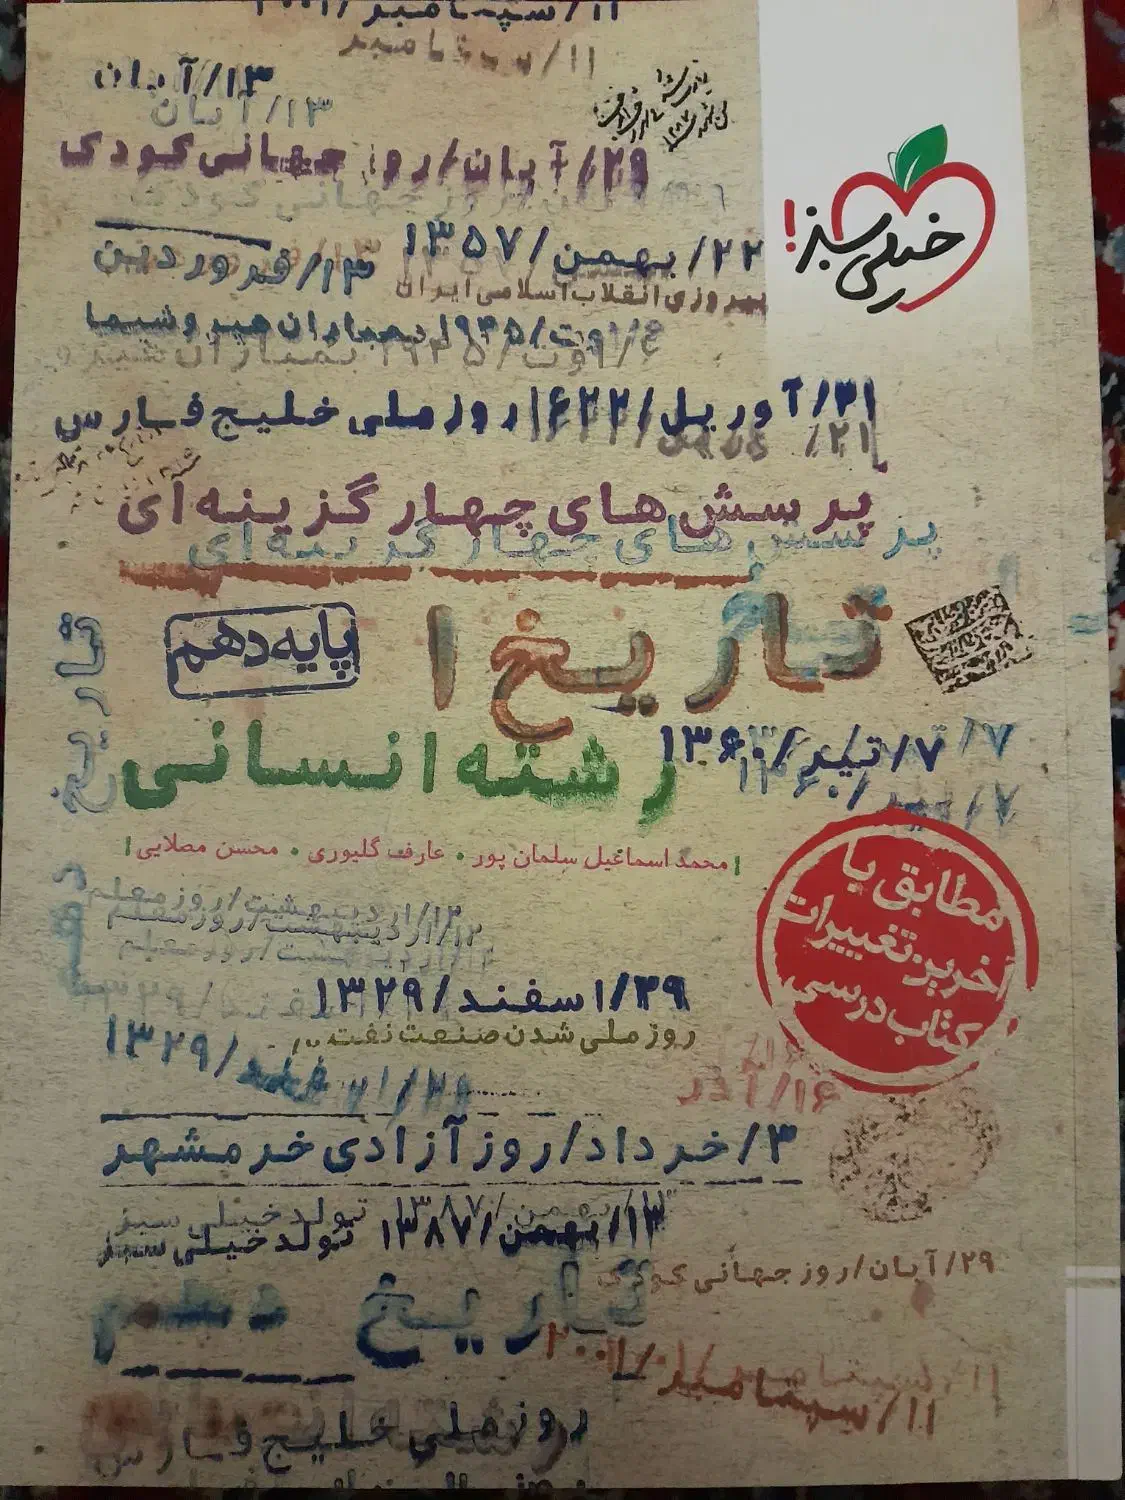 ۱۱/سپتامبر/۲۰۰۱
۱۱/سپتامبر
۱۳/آبان
۱۳/آبان
۲۹/آبان/روز جهانی کودک
خیلی سبز!
۲۲/بهمن/۱۳۵۷
۱۳/فروردین
پیروزی انقلاب اسلامی ایران
۶/اوت/۱۹۴۵ بمباران هیروشیما
۲۱/آوریل/۱۶۲۲ روز ملی خلیج فارس
پرسش های چهارگزینه ای
پرسش های چهارگزینه ای
تاریخ ۱
پایه دهم
تاریخ
۷/تیر/۱۳۶۰
رشته انسانی
محمد اسماعیل سلمان پور • عارف گلپوری • محسن مصلایی
مطابق با
آخرین تغییرات
کتاب درسی
۱۲/اردیبهشت/روز معلم
۱۲/اردیبهشت/روز معلم
۱۲/اردیبهشت/روز معلم
۲۹/اسفند/۱۳۲۹
روز ملی شدن صنعت نفت
۲۹/اسفند/۱۳۲۹
۱۶/آذر
۳/خرداد/روز آزادی خرمشهر
۱۳/بهمن/۱۳۸۷ تولد خیلی سبز
تولد خیلی سبز
۲۹/آبان/روز جهانی کودک
تاریخ دهم
۱۱/سپتامبر/۲۰۰۱
۱۱/سپتامبر
روز ملی خلیج فارس